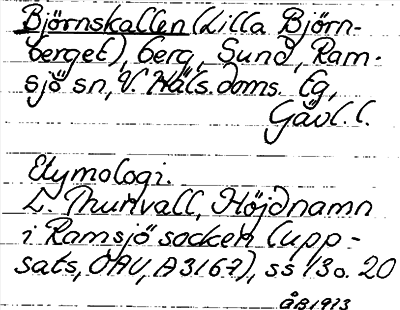 Björnskallen (Lilla Björn-
berget), berg, Sund, Ram-
sjö sn, V. Häls. doms. tg,
Gävl. l.
Etymologi.
L. Thunvall, Höjdnamn
i Ramsjö socken (upp-
sats, OAU, A3167), ss 13 o. 20
ÅB 1973